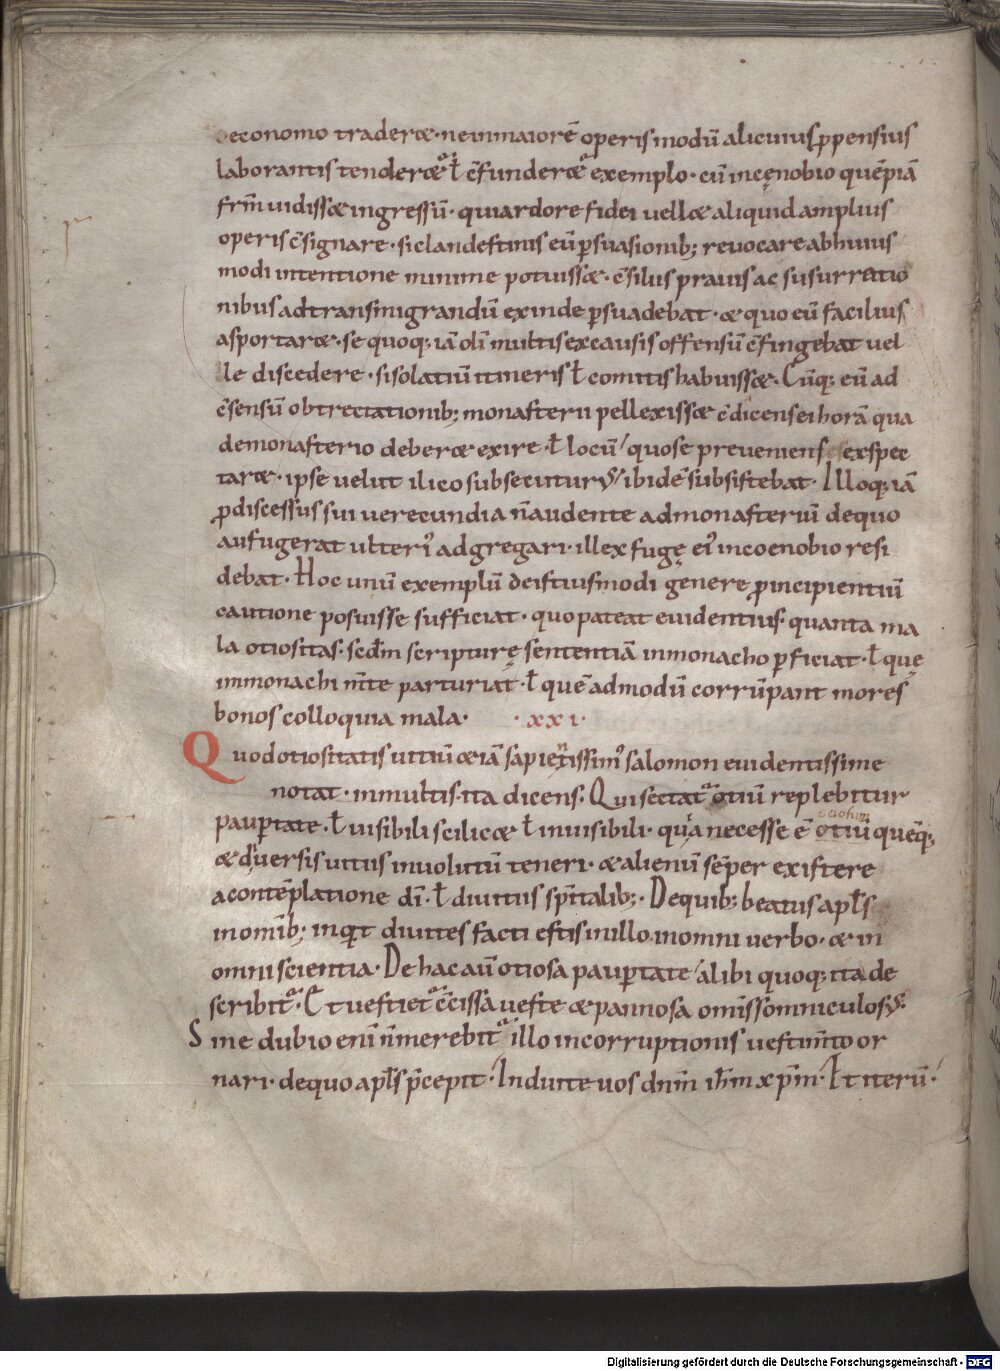 oeconomo traderet · ne inmaiorē operis modū alicuius ꝓpensius
laborantis tenderetᷣ ł c̄funderetᷣ exemplo · cū incęnobio quēpiā
frm̄ uidisset ingressū · qui ardore fidei uellet aliquid amplius
operis c̄signare · si clandestinis eū ꝑsuasionib; reuocare ab huius
modi intentione minime potuisset · c̄siliis prauis ac susurratio
nibus ad transmigrandū exinde ꝑsuadebat · et quo eū facilius
asportaret · se quoq; iā oli multis ex causis offensū c̄fingebat uel
le discedere · si solatiū itineris ł comitis habuisset · Cūq; eū ad
c̄sensū obtrectationib; monasterii pellexisset c̄dicens ei horā qua
de monasterio deberet exire · ł locū quo se preueniens exspec
taret · ipse uelut ilico subsecuturꝰ ibidē subsistebat · Illoq; iā
ꝓ discessus sui uerecundia n̄ audente ad monasteriū de quo
aufugerat ulteriꝰ adgregari · ille x fugę eiꝰ in coenobio resi
debat · Hoc unū exemplū de istiusmodi genere ꝓ incipientiū
cautione posuisse sufficiat · quo pateat euidentius · quanta ma
la otiositas · scdm̄ scripturę sententiā in monacho ꝑficiat · ł quę
in monachi m̄te parturiat · ł quēadmodū corrūpant mores
bonos colloquia mala · · xxi ·
Quod otiositatis uitiū etiā sapientissimꝰ salomon euidentissime
notat · in multis · ita dicens · Qui sectatᷣ otiū replebitur
pauꝑtate · ł uisibili scilicet ł inuisibili · qua necesse ē otiū quēq;
et diuersis uitiis inuolutū teneri · et alienū sēper existere
a contēplatione dī · ł diuitiis sp̄italib; · De quib; beatus apłs
in omīb; inquit diuites facti estis in illo in omni uerbo · et in
omni scientia · De hac aū otiosa pauꝑtate alibi quoq; ita de
scribitᷣ · Et uestietᷣ c̄cissa ueste et pannosa omīs somniculosꝰ
Sine dubio eni n̄ merebitᷣ illo incorruptionis uestim̄to or
nari · de quo apłs p̄cepit · Induite uos dn̄m ih̄m xp̄m · Et iterū ·